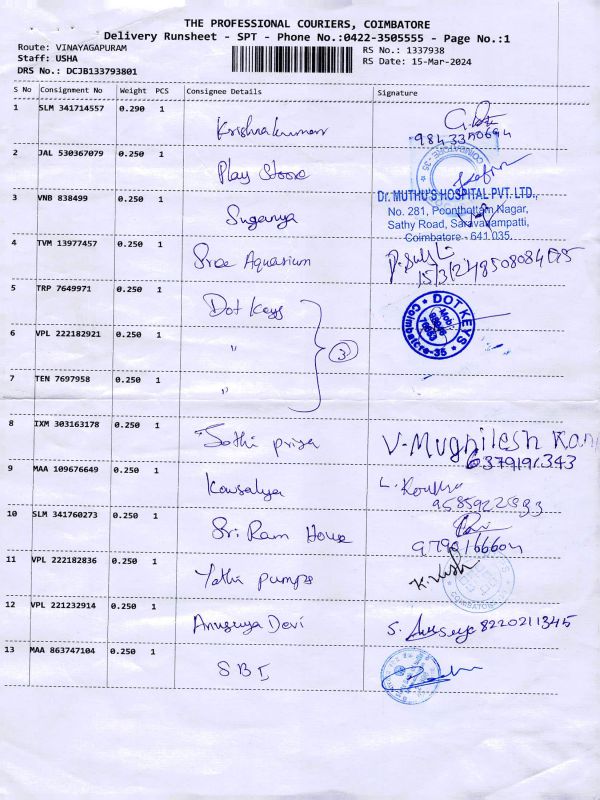 THE PROFESSIONAL COURIERS, COIMBATORE
Delivery Runsheet - SPT - Phone No.:0422-3505555 - Page No.:1
Route: VINAYAGAPURAM
RS No.: 1337938
Staff: USHA
RS Date: 15-Mar-2024
DRS No.: DCJB133793801
S No Consignment No Weight PCS Consignee Details Signature
1 SLM 341714557 0.290 1 Krishnakumar
2 JAL 530367079 0.250 1 Play Stoore
3 VNB 838499 0.250 1 Suganya
Dr. MUTHU'S HOSPITAL PVT. LTD.,
No. 281, Poonthottam Nagar,
Sathy Road, Saravanampatti,
Coimbatore - 641 035.
4 TVM 13977457 0.250 1 Sree Aquarium
5 TRP 7649971 0.250 1 Dot Keys
DOT KEYS
Coimbatore-35
6 VPL 222182921 0.250 1 "
3
7 TEN 7697958 0.250 1 "
8 IXM 303163178 0.250 1 Sathi priya
6379191343
9 MAA 109676649 0.250 1 Kousalya
10 SLM 341760273 0.250 1 Sri Ram House
11 VPL 222182836 0.250 1 Yathi pumps
12 VPL 221232914 0.250 1 Anusuya Devi
8220211345
13 MAA 863747104 0.250 1 SBI